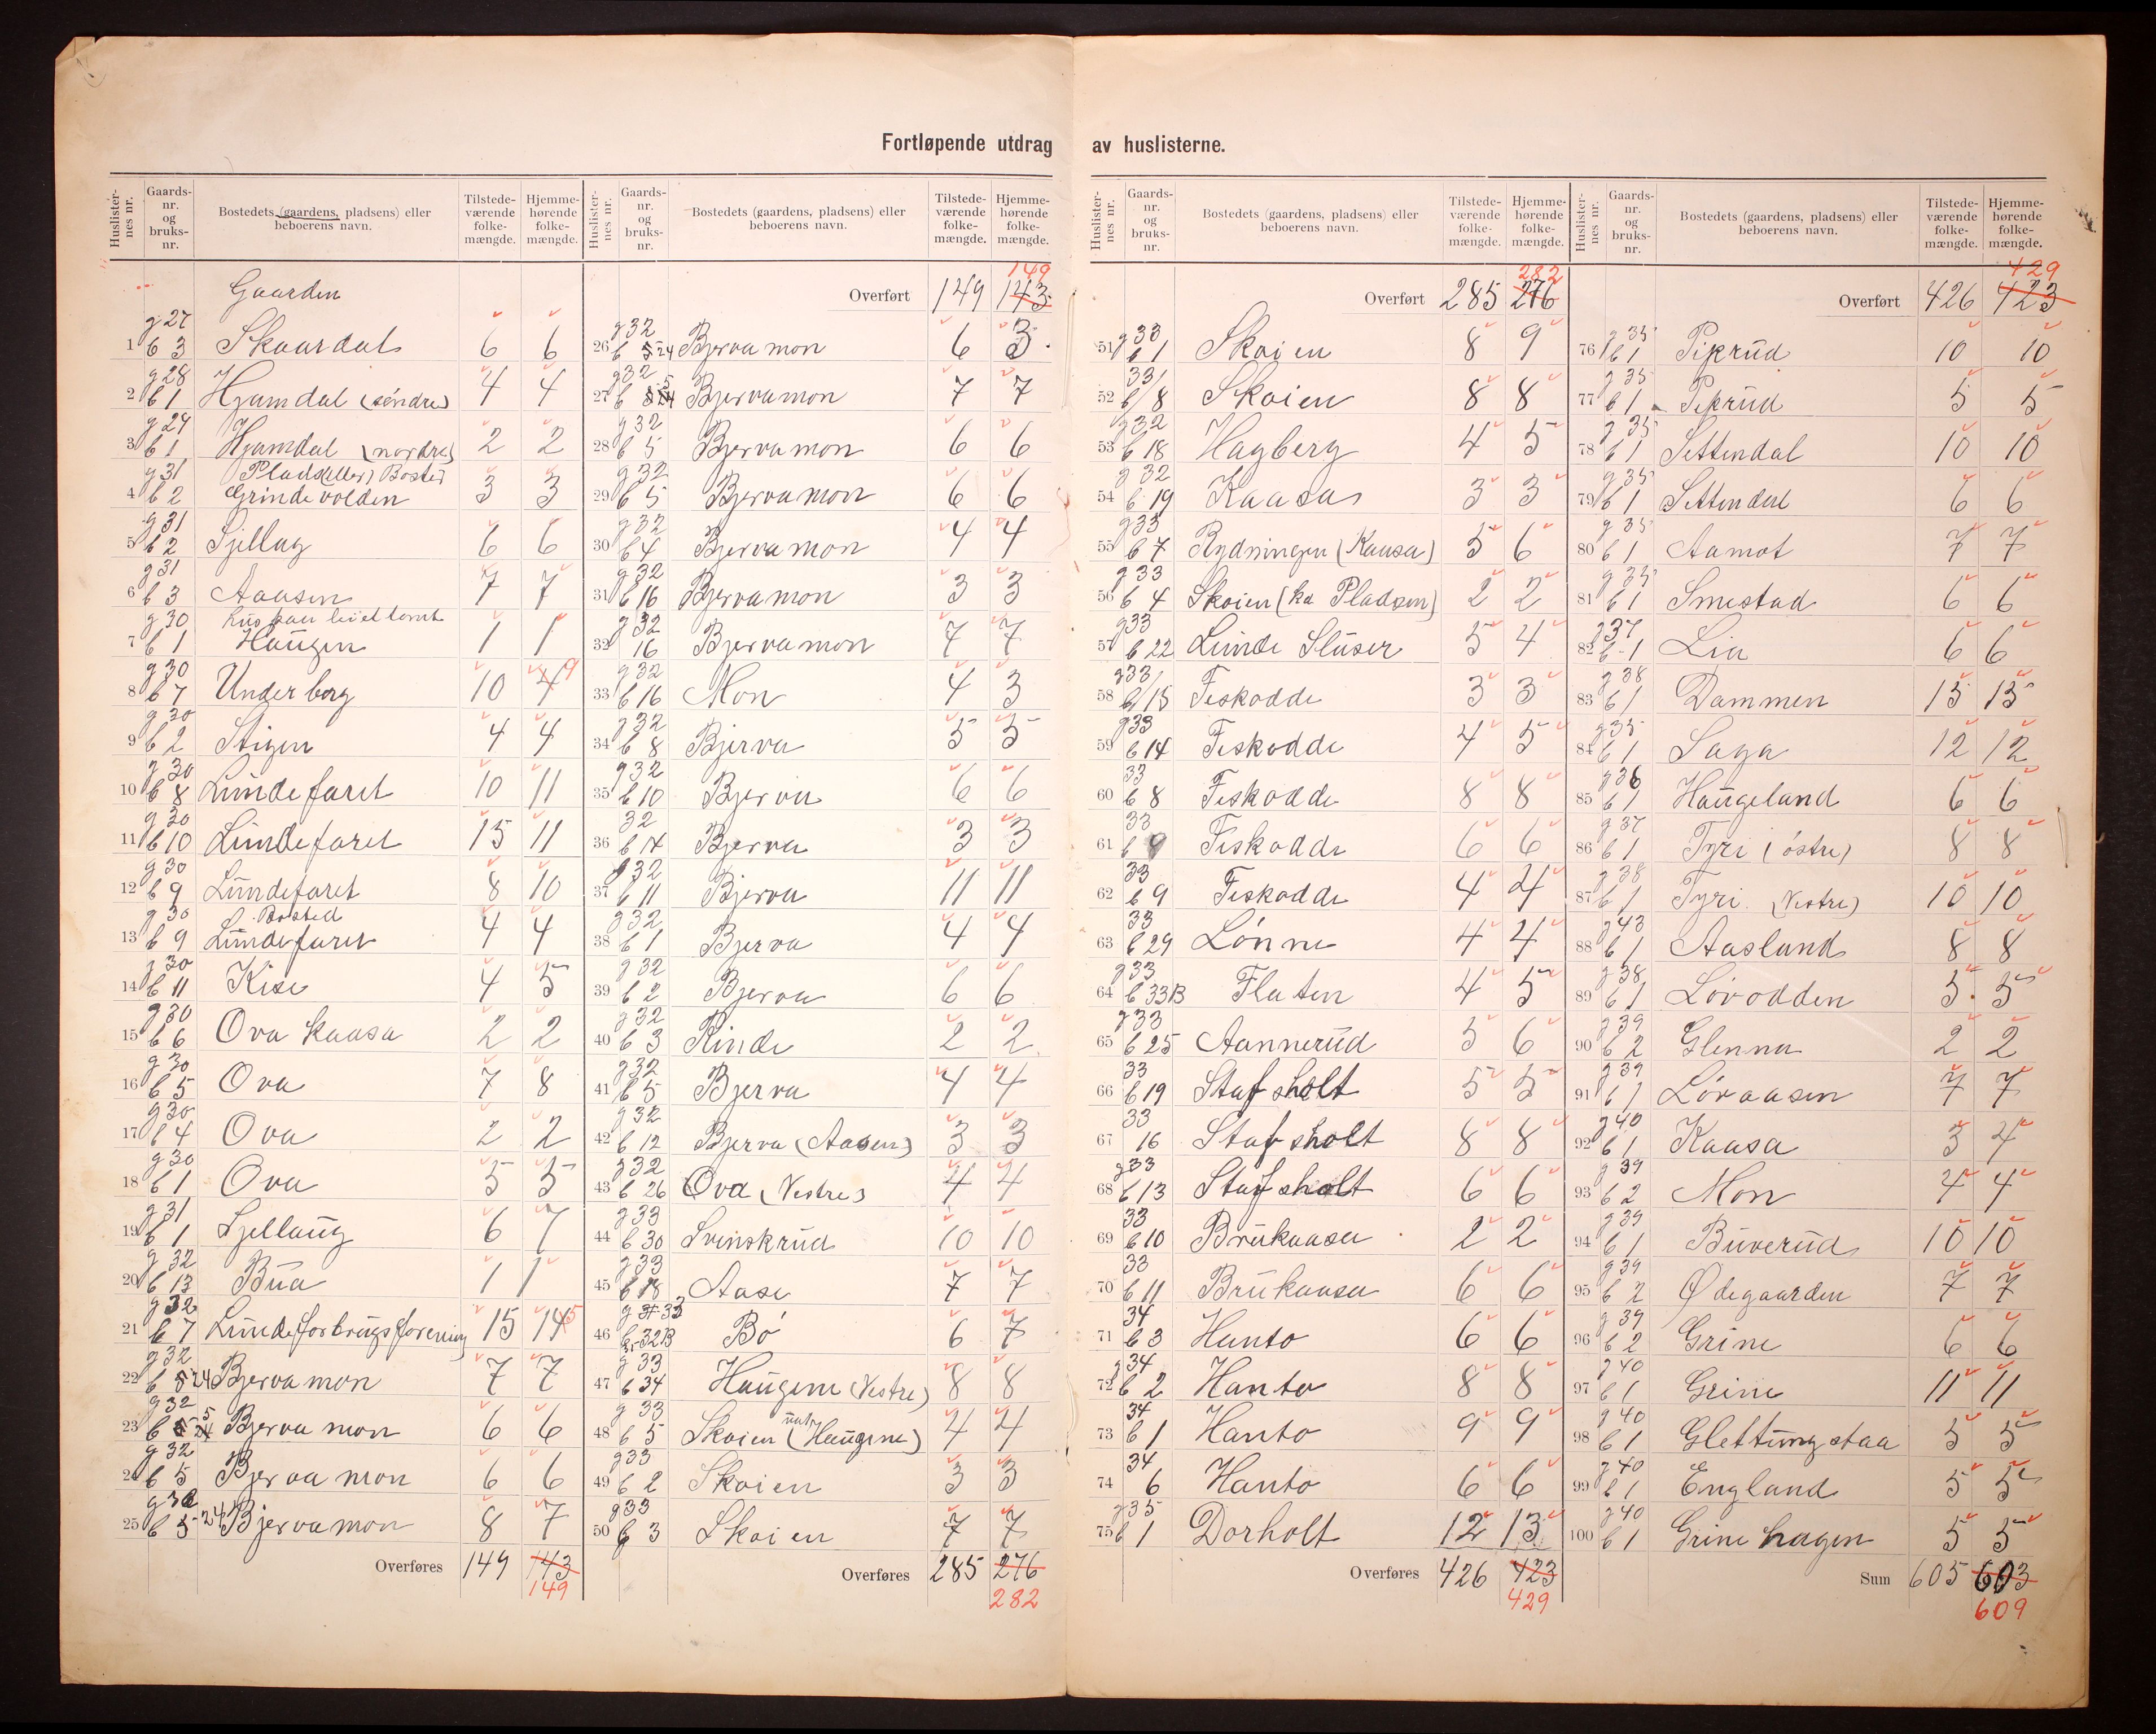 Fortløpende utdrag av huslisterne.
Huslisternes nr. | Gaards-nr. og bruks-nr. | Bostedets (gaardens, pladsens) eller beboerens navn. | Tilstede-værende folke-mængde. | Hjemme-hørende folke-mængde.
Gaarden
1 g 27 b 3 Skaardal 6 6
2 g 28 b 1 Hjamdal (søndre) 4 4
3 g 29 b 1 Hjamdal (nordre) 2 2
Plads(eller) Bosted
4 g 31 b 2 Grindevolden 3 3
5 g 31 b 2 Sjellag 6 6
6 g 31 b 3 Aaasen 7 7
7 g 30 b 1 Haugen 1 1
8 g 30 b 7 Underberg 10 4 9
9 g 30 b 2 Stigen 4 4
10 g 30 b 8 Lundefaret 10 11
11 g 30 b 10 Lundefaret 15 11
12 g 30 b 9 Lundefaret 8 10
Bosted
13 g 30 b 9 Lundefaret 4 4
14 g 30 b 11 Kise 4 5
15 g 30 b 6 Ova Kaasa 2 2
16 g 30 b 5 Ova 7 8
17 g 30 b 4 Ova 2 2
18 g 30 b 1 Ova 5 5
19 g 31 b 1 Sjellaug 6 7
20 g 32 b 13 Bua 1 1
21 g 32 b 7 Lundeforbrugsforening 15 14 5
22 g 32 b 5 24 Bjervamon 7 7
23 g 32 b 5 Bjervamon 6 6
24 g 32 b 5 Bjervamon 6 6
25 g 32 b 5 24 Bjervamon 8 7
Overføres 149 143
149
Huslisternes nr. | Gaards-nr. og bruks-nr. | Bostedets (gaardens, pladsens) eller beboerens navn. | Tilstede-værende folke-mængde. | Hjemme-hørende folke-mængde.
149
Overført 149 143
26 g 32 b 5 24 Bjervamon 6 3
27 g 32 b 5 Bjervamon 7 7
28 g 32 b 5 Bjervamon 6 6
29 g 32 b 5 Bjervamon 6 6
30 g 32 b 4 Bjervamon 4 4
31 g 32 b 16 Bjervamon 3 3
32 g 32 16 Bjervamon 7 7
33 g 32 b 16 Mon 4 3
34 g 32 b 8 Bjerva 5 5
35 g 32 b 10 Bjerva 6 6
36 32 b 14 Bjerva 3 3
37 g 32 b 11 Bjerva 11 11
38 g 32 b 1 Bjerva 4 4
39 g 32 b 2 Bjerva 6 6
40 g 32 b 3 Rinde 2 2
41 g 32 b 5 Bjerva 4 4
42 g 32 b 12 Bjerva (Aasen) 3 3
43 g 32 b 26 Ova (Vestre) 4 4
44 g 33 b 30 Svinskrud 10 10
45 g 33 b 18 Aase 7 7
46 g 33 b 32B Bó 6 7
47 g 33 b 34 Haugene (Vestre) 8 8
48 g 33 b 5 Skoien (Haugene) 4 4
49 g 33 b 2 Skoien 3 3
50 g 33 b 3 Skoien 7 7
Overføres 285 276
282
Huslisternes nr. | Gaards-nr. og bruks-nr. | Bostedets (gaardens, pladsens) eller beboerens navn. | Tilstede-værende folke-mængde. | Hjemme-hørende folke-mængde.
282
Overført 285 276
51 g 33 b 1 Skoien 8 9
52 33 b 8 Skoien 8 8
53 g 32 b 18 Hagberg 4 5
54 g 32 b 19 Kaasa 3 3
55 g 33 b 7 Rydningen (Kaasa) 5 6
56 g 33 b 4 Skoien (ka Pladsen) 2 2
57 g 33 b 22 Lunde Sluser 5 4
58 g 33 b 15 Feskodde 3 3
59 g 33 b 14 Feskodde 4 5
60 33 b 8 Feskodde 8 8
61 33 b 9 Feskodde 6 6
62 33 b 9 Feskodde 4 4
63 33 b 29 Lónne 4 4
64 g 33 b 33B Flaten 4 5
65 g 33 b 25 Aannerud 5 6
66 33 b 19 Stafsholt 5 5
67 33 16 Stafsholt 8 8
68 g 33 b 13 Stafsholt 6 6
69 33 b 10 Brukaasa 2 2
70 33 b 11 Brukaasa 6 6
71 34 b 3 Hanto 6 6
72 g 34 b 2 Hanto 8 8
73 34 b 1 Hanto 9 9
74 34 6 Hanto 6 6
75 g 35 b 1 Dorholt 12 13
Overføres 426 423
429
Huslisternes nr. | Gaards-nr. og bruks-nr. | Bostedets (gaardens, pladsens) eller beboerens navn. | Tilstede-værende folke-mængde. | Hjemme-hørende folke-mængde.
429
Overført 426 423
76 g 35 b 1 Pikrud 10 10
77 g 35 b 1 Pikrud 5 5
78 g 35 b 1 Settendal 10 10
79 g 35 b 1 Settendal 6 6
80 g 35 b 1 Aamot 7 7
81 g 35 b 1 Smestad 6 6
82 g 37 b 1 Lia 6 6
83 g 38 b 1 Dammen 15 15
84 g 35 b 1 Saga 12 12
85 g 36 b 1 Haugeland 6 6
86 g 37 b 1 Tyri (óstre) 8 8
87 g 38 b 1 Tyri (Vestre) 10 10
88 g 43 b 1 Aasland 8 8
89 g 38 b 1 Lóvodden 5 5
90 g 39 b 2 Glenna 2 2
91 g 39 b 1 Lóvaasen 7 7
92 g 40 b 1 Kaasa 3 4
93 g 39 b 2 Mon 4 4
94 g 39 b 1 Buverud 10 10
95 g 39 b 2 Ødegaarden 7 7
96 g 39 b 2 Grine 6 6
97 g 40 b 1 Grine 11 11
98 g 40 b 1 Glettungstaa 5 5
99 g 40 b 1 England 5 5
100 g 40 b 1 Grinehagen 5 5
Sum 605 603
609